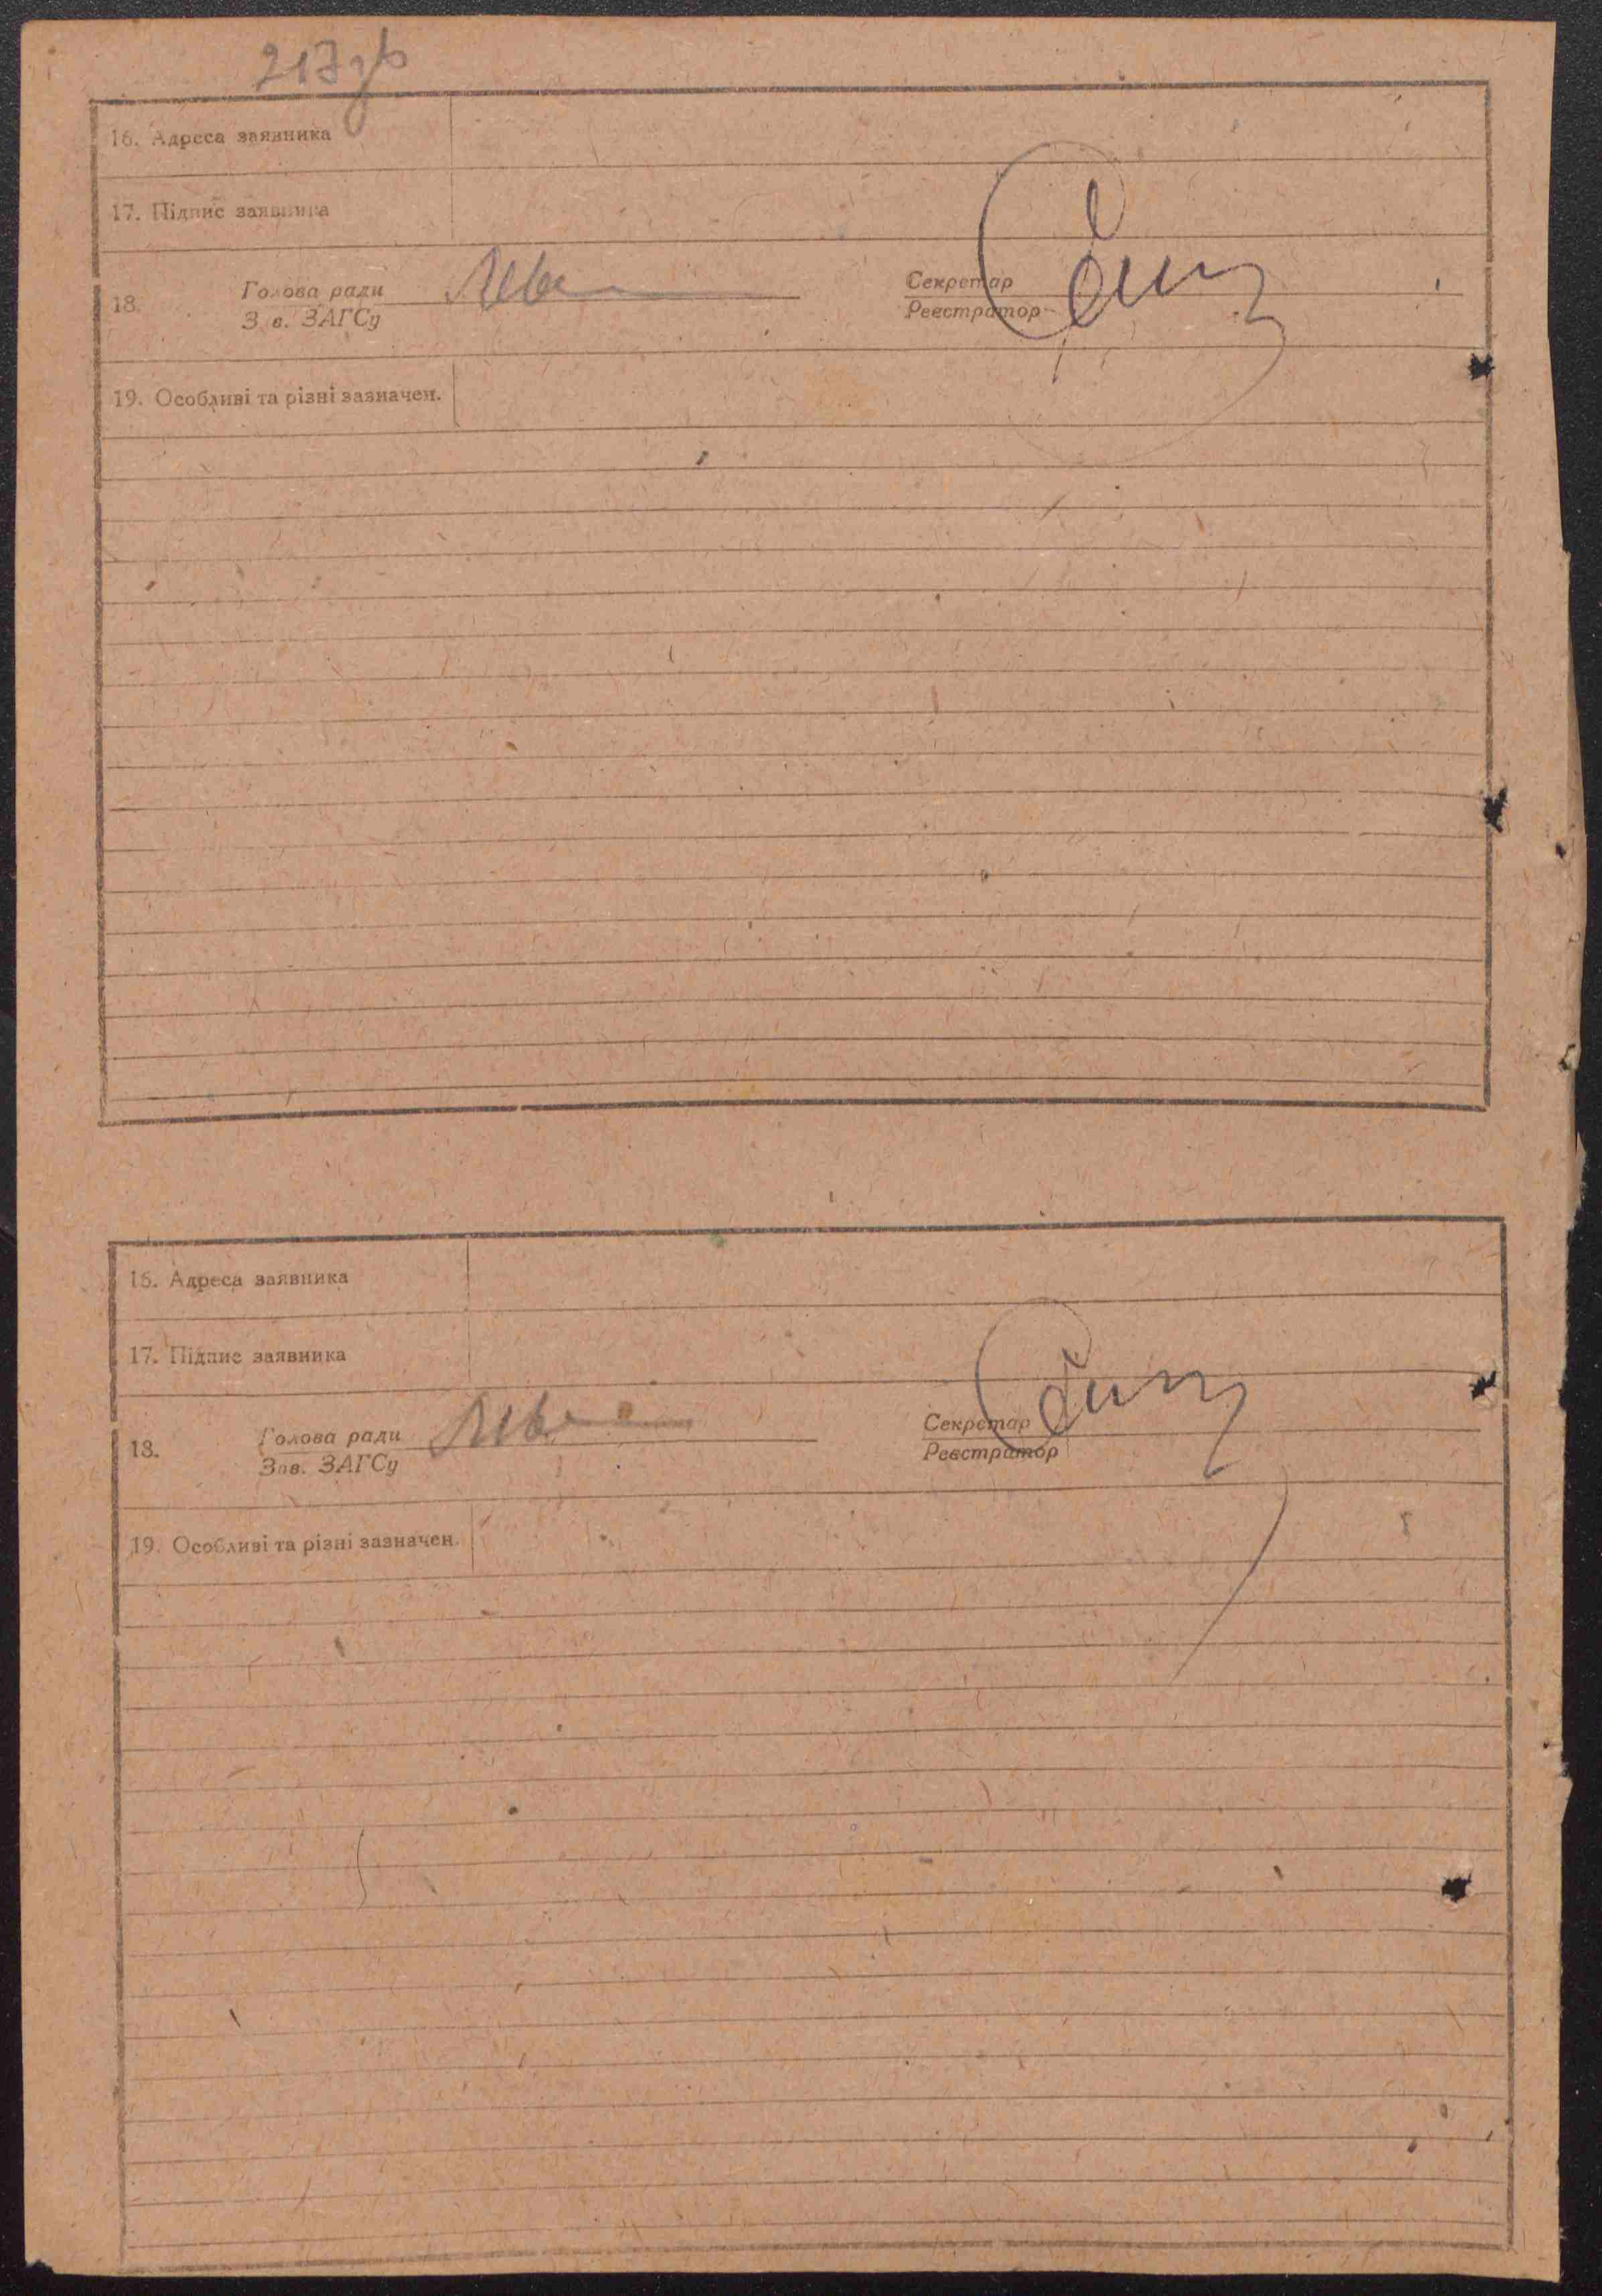 217зв
16. Адреса заявника
17. Підпис заявника
18. Голова ради Секретар
Зав. ЗАГСу Реєстратор
19. Особливі та різні зазначен.
16. Адреса заявника
17. Підпис заявника
18. Голова ради Секретар
Зав. ЗАГСу Реєстратор
19. Особливі та різні зазначен.